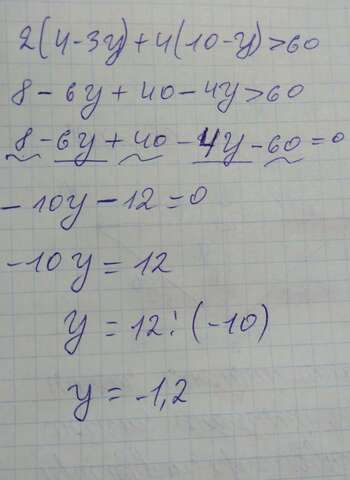 2(4-3y)+4(10-y)>60
8-6y+40-4y>60
8-6y+40-4y-60=0
-10y-12=0
-10y=12
y=12:(-10)
y=-1,2